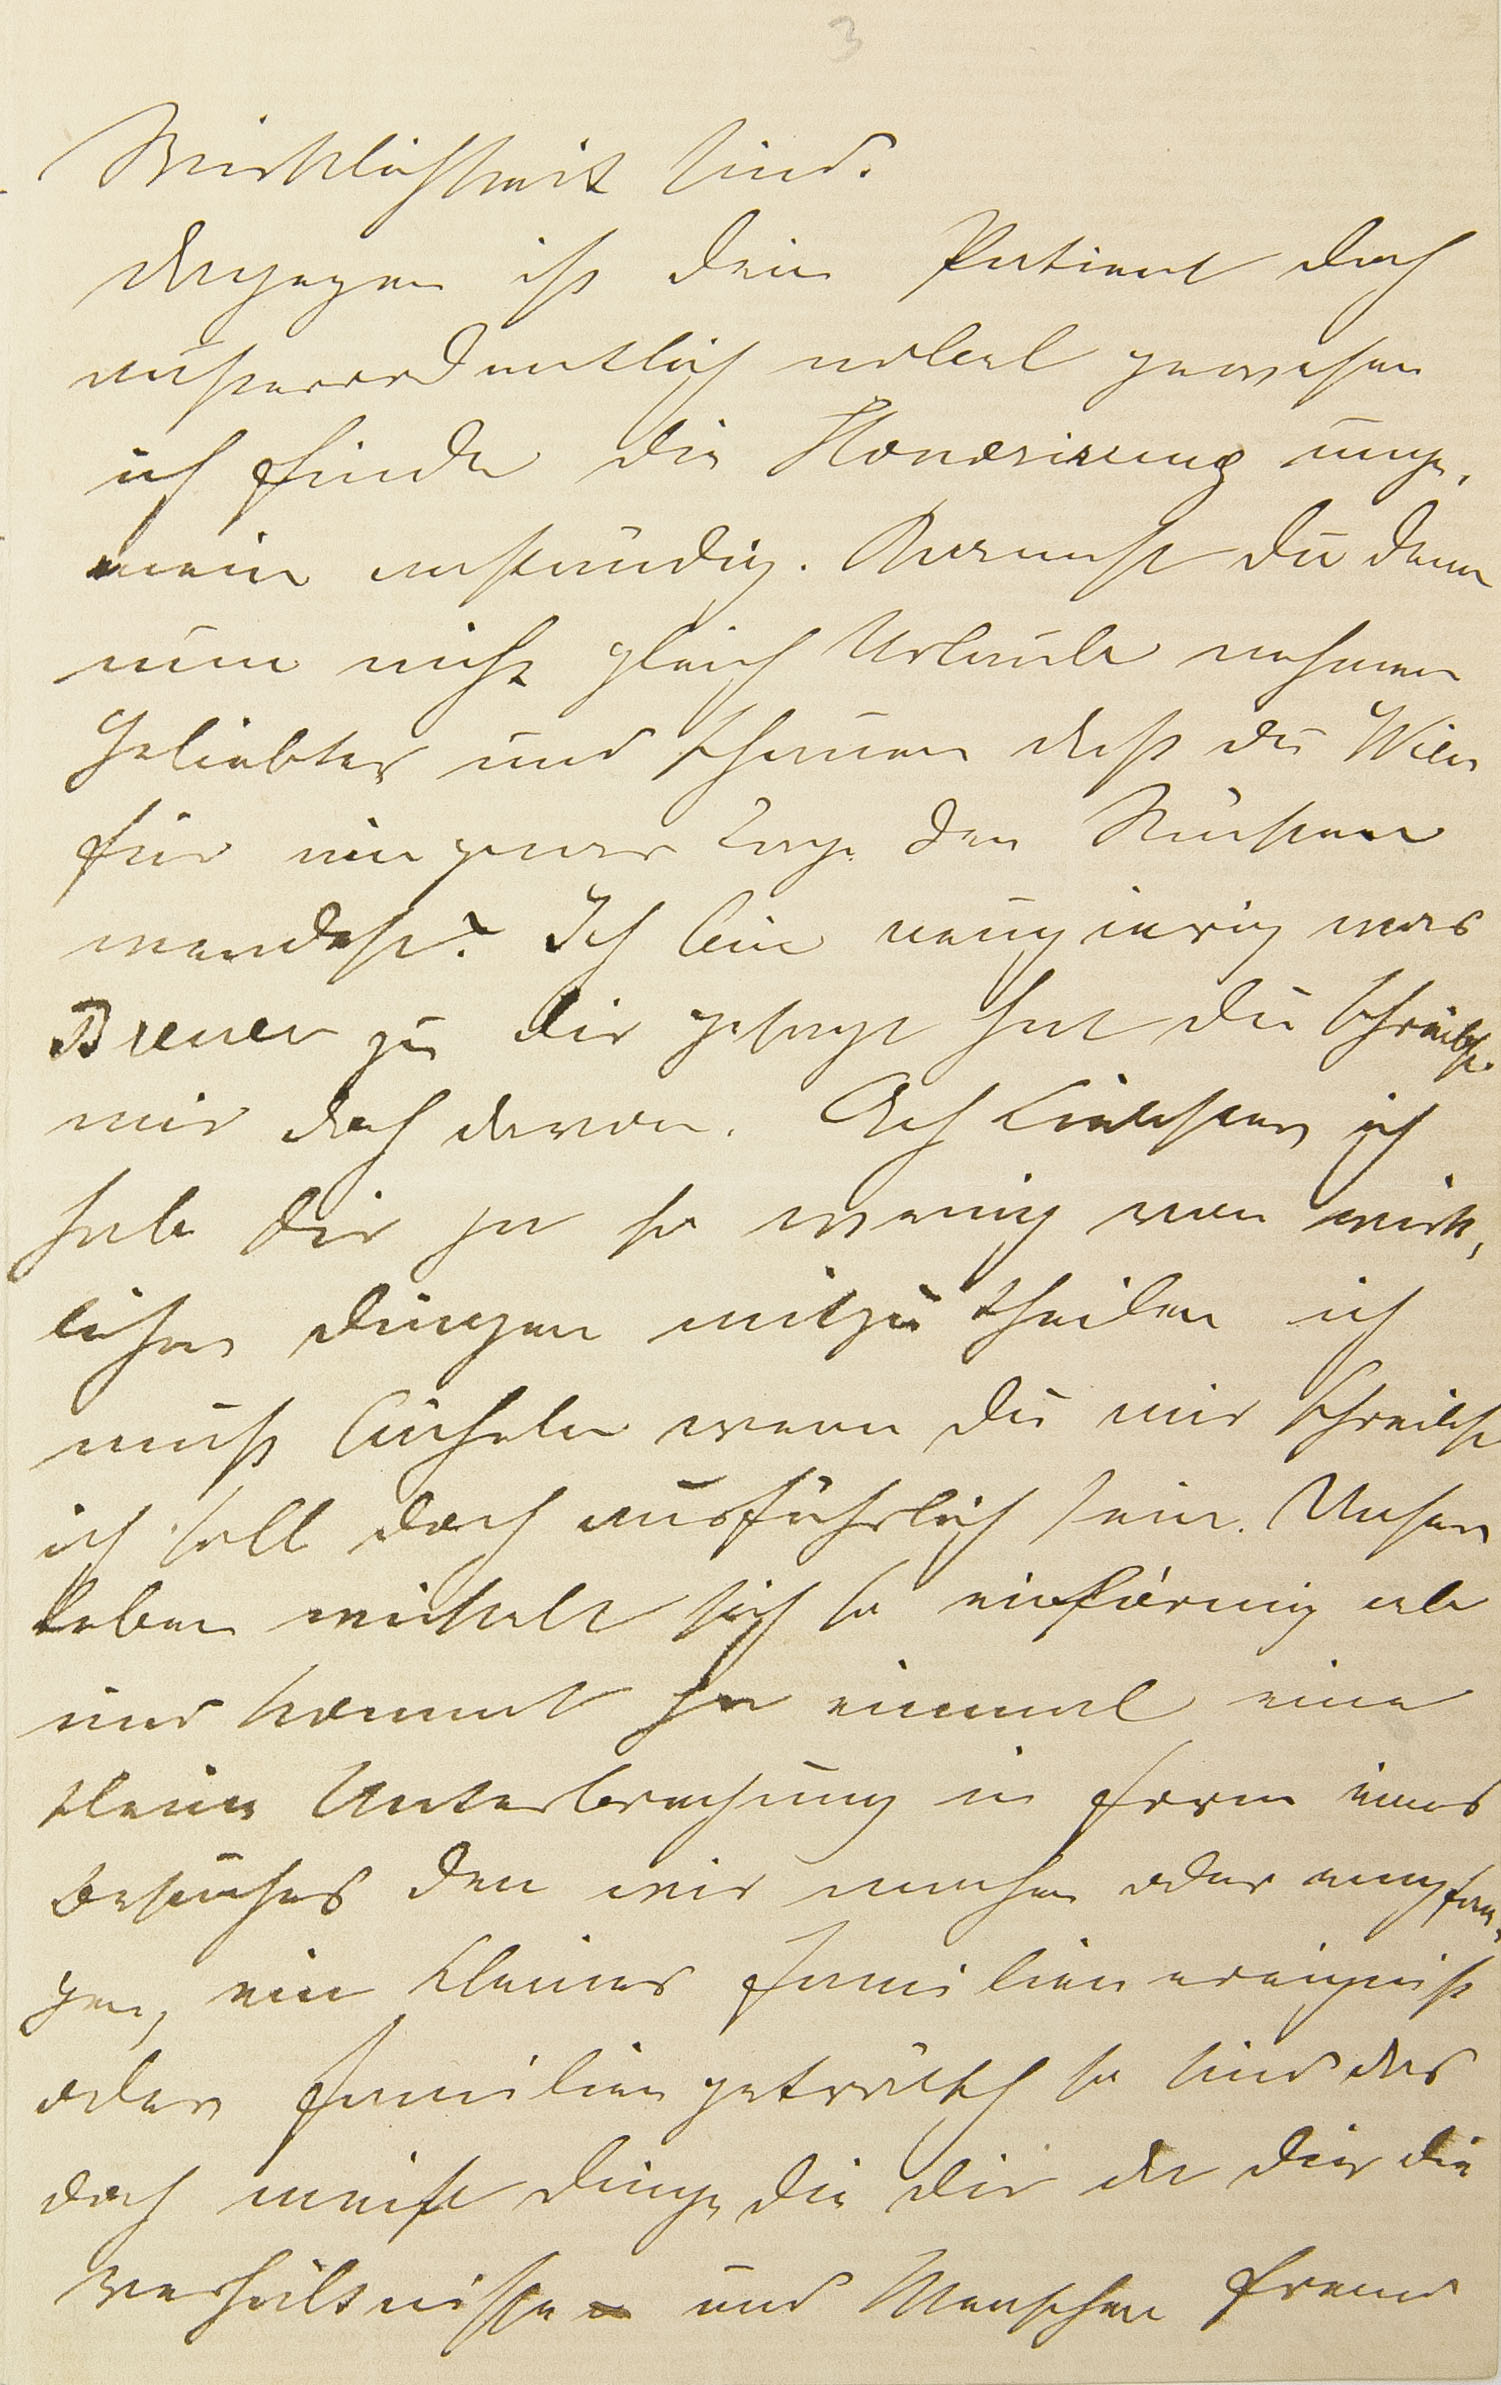 3
Wirklichkeit sind.
dagegen ist dein Patient doch
außerordentlich nobel gewesen
ich finde die Honorirung unge,
mein anständig. Kannst du denn
nun nicht gleich Urlaub nehmen
Geliebter und schauen daß du Wien
für ein paar Tage den Rücken
wendest? Ich bin neugierig was
Breuer zu dir gesagt hat du schreibst
mir doch davon. Ach Liebster ich
hab dir ja so wenig von wirk,
lichen dingen mitzutheilen ich
muß lächeln wenn du mir schreibst
ich soll doch ausführlich sein. Unser
Leben wickelt sich so einförmig ab
und kommt ja einmal eine
kleine Unterbrechung in form eines
besuches den wir machen oder empfan,
gen, ein kleines Familienereigniß
oder Familiengeträtsch so sind das
doch meist dinge die dir da dir die
verhältnisse und Menschen fremd